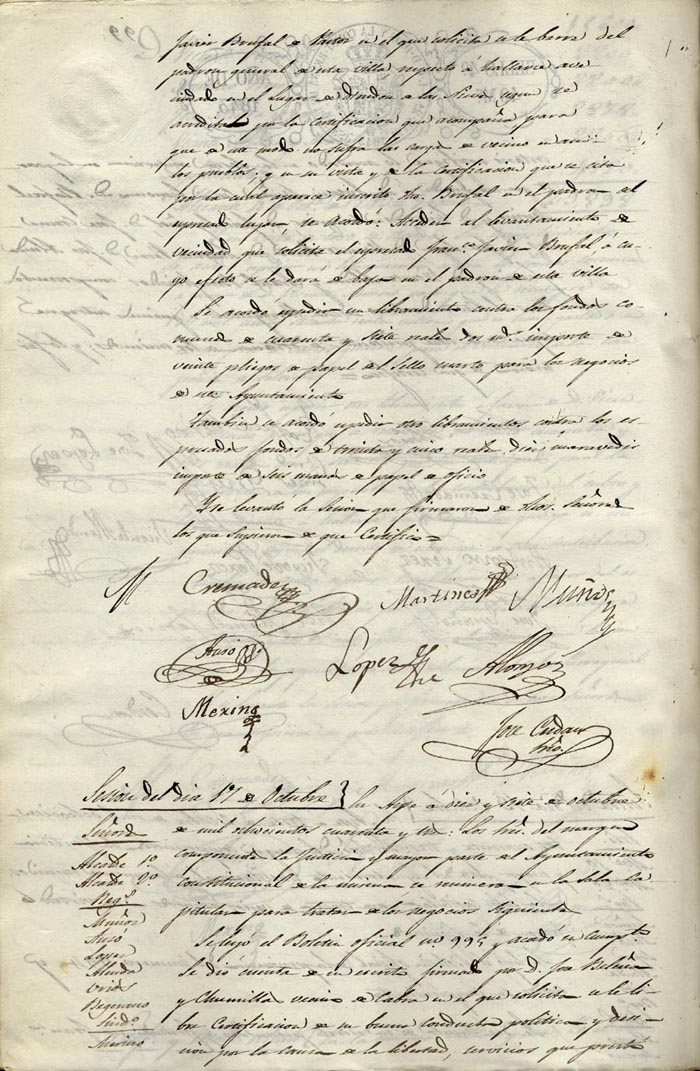 Javier Brufal en el que solicita se le borre del
padron general de esta villa respecto á hallarse ave
cindado en el Lugar de
acredita por la certificacion que acompaña para
que de este modo no sufra las cargas de vecino en am
los pueblos; y en su vista y de la Certificacion que se cita
por la cual aparece inscrito dho. Brufal en el padron del
espresado lugar, se acordó: Acceder al levantamiento de
vecindad que solicita el espresado Franco. Javier Brufal, á cu
yo efecto se le dará de baja en el padron de esta villa
Se acordó espedir un libramiento contra los fondos co
munes de cuarenta y siete reales dos ms. importe de
veinte pliegos de papel del sello cuarto para los negocios
de este Ayuntamiento
Tambien se acordó espedir otro libramiento contra los es
presados fondos de treinta y cinco reales diez maravedis
importe de seis manos de papel de oficio
Y se levantó la Sesion que firmaron de dhos. Señores
los que supieron de que Certifico =
Cremades
Martinez
Muñoz
Auso
Lopez
Alonzo
Merino
Jose Cañdau
Srio.
Sesion del dia 17 de Octubre
En Aspe á diez y siete de octubre
de mil ochocientos cuarenta y tres: Los Sres. del margen
componen la Justicia y mayor parte del Ayuntamiento
constitucional de la misma se reunieron en la Sala Ca
pitular para tratar de los negocios siguientes
Señores
Alcalde 1o
Alcalde 2o
Regs.
Muñoz
Auso
Lopez
Sindo.
Merino
Se leyó el Boletin oficial no 995 y acordó su cumpto.
Se dió cuenta de un escrito firmado por D. Jose
y Chumilla vecino de en el que solicita se le li
bre Certificacion de su buena conducta politica y deci
cion por la causa de la libertad, servicios que